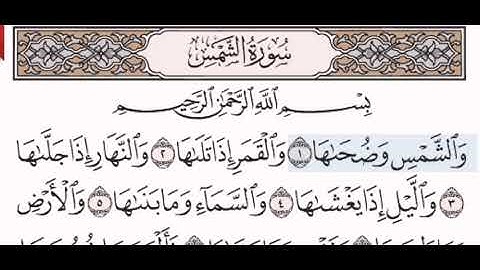 سُورَةُ الشَّمْسِ
بِسْمِ اللَّهِ الرَّحْمَٰنِ الرَّحِيمِ
وَالشَّمْسِ وَضُحَىٰهَا ١ وَالْقَمَرِ إِذَا تَلَىٰهَا ٢ وَالنَّهَارِ إِذَا جَلَّىٰهَا
٣ وَاللَّيْلِ إِذَا يَغْشَىٰهَا ٤ وَالسَّمَاءِ وَمَا بَنَىٰهَا ٥ وَالْأَرْضِ